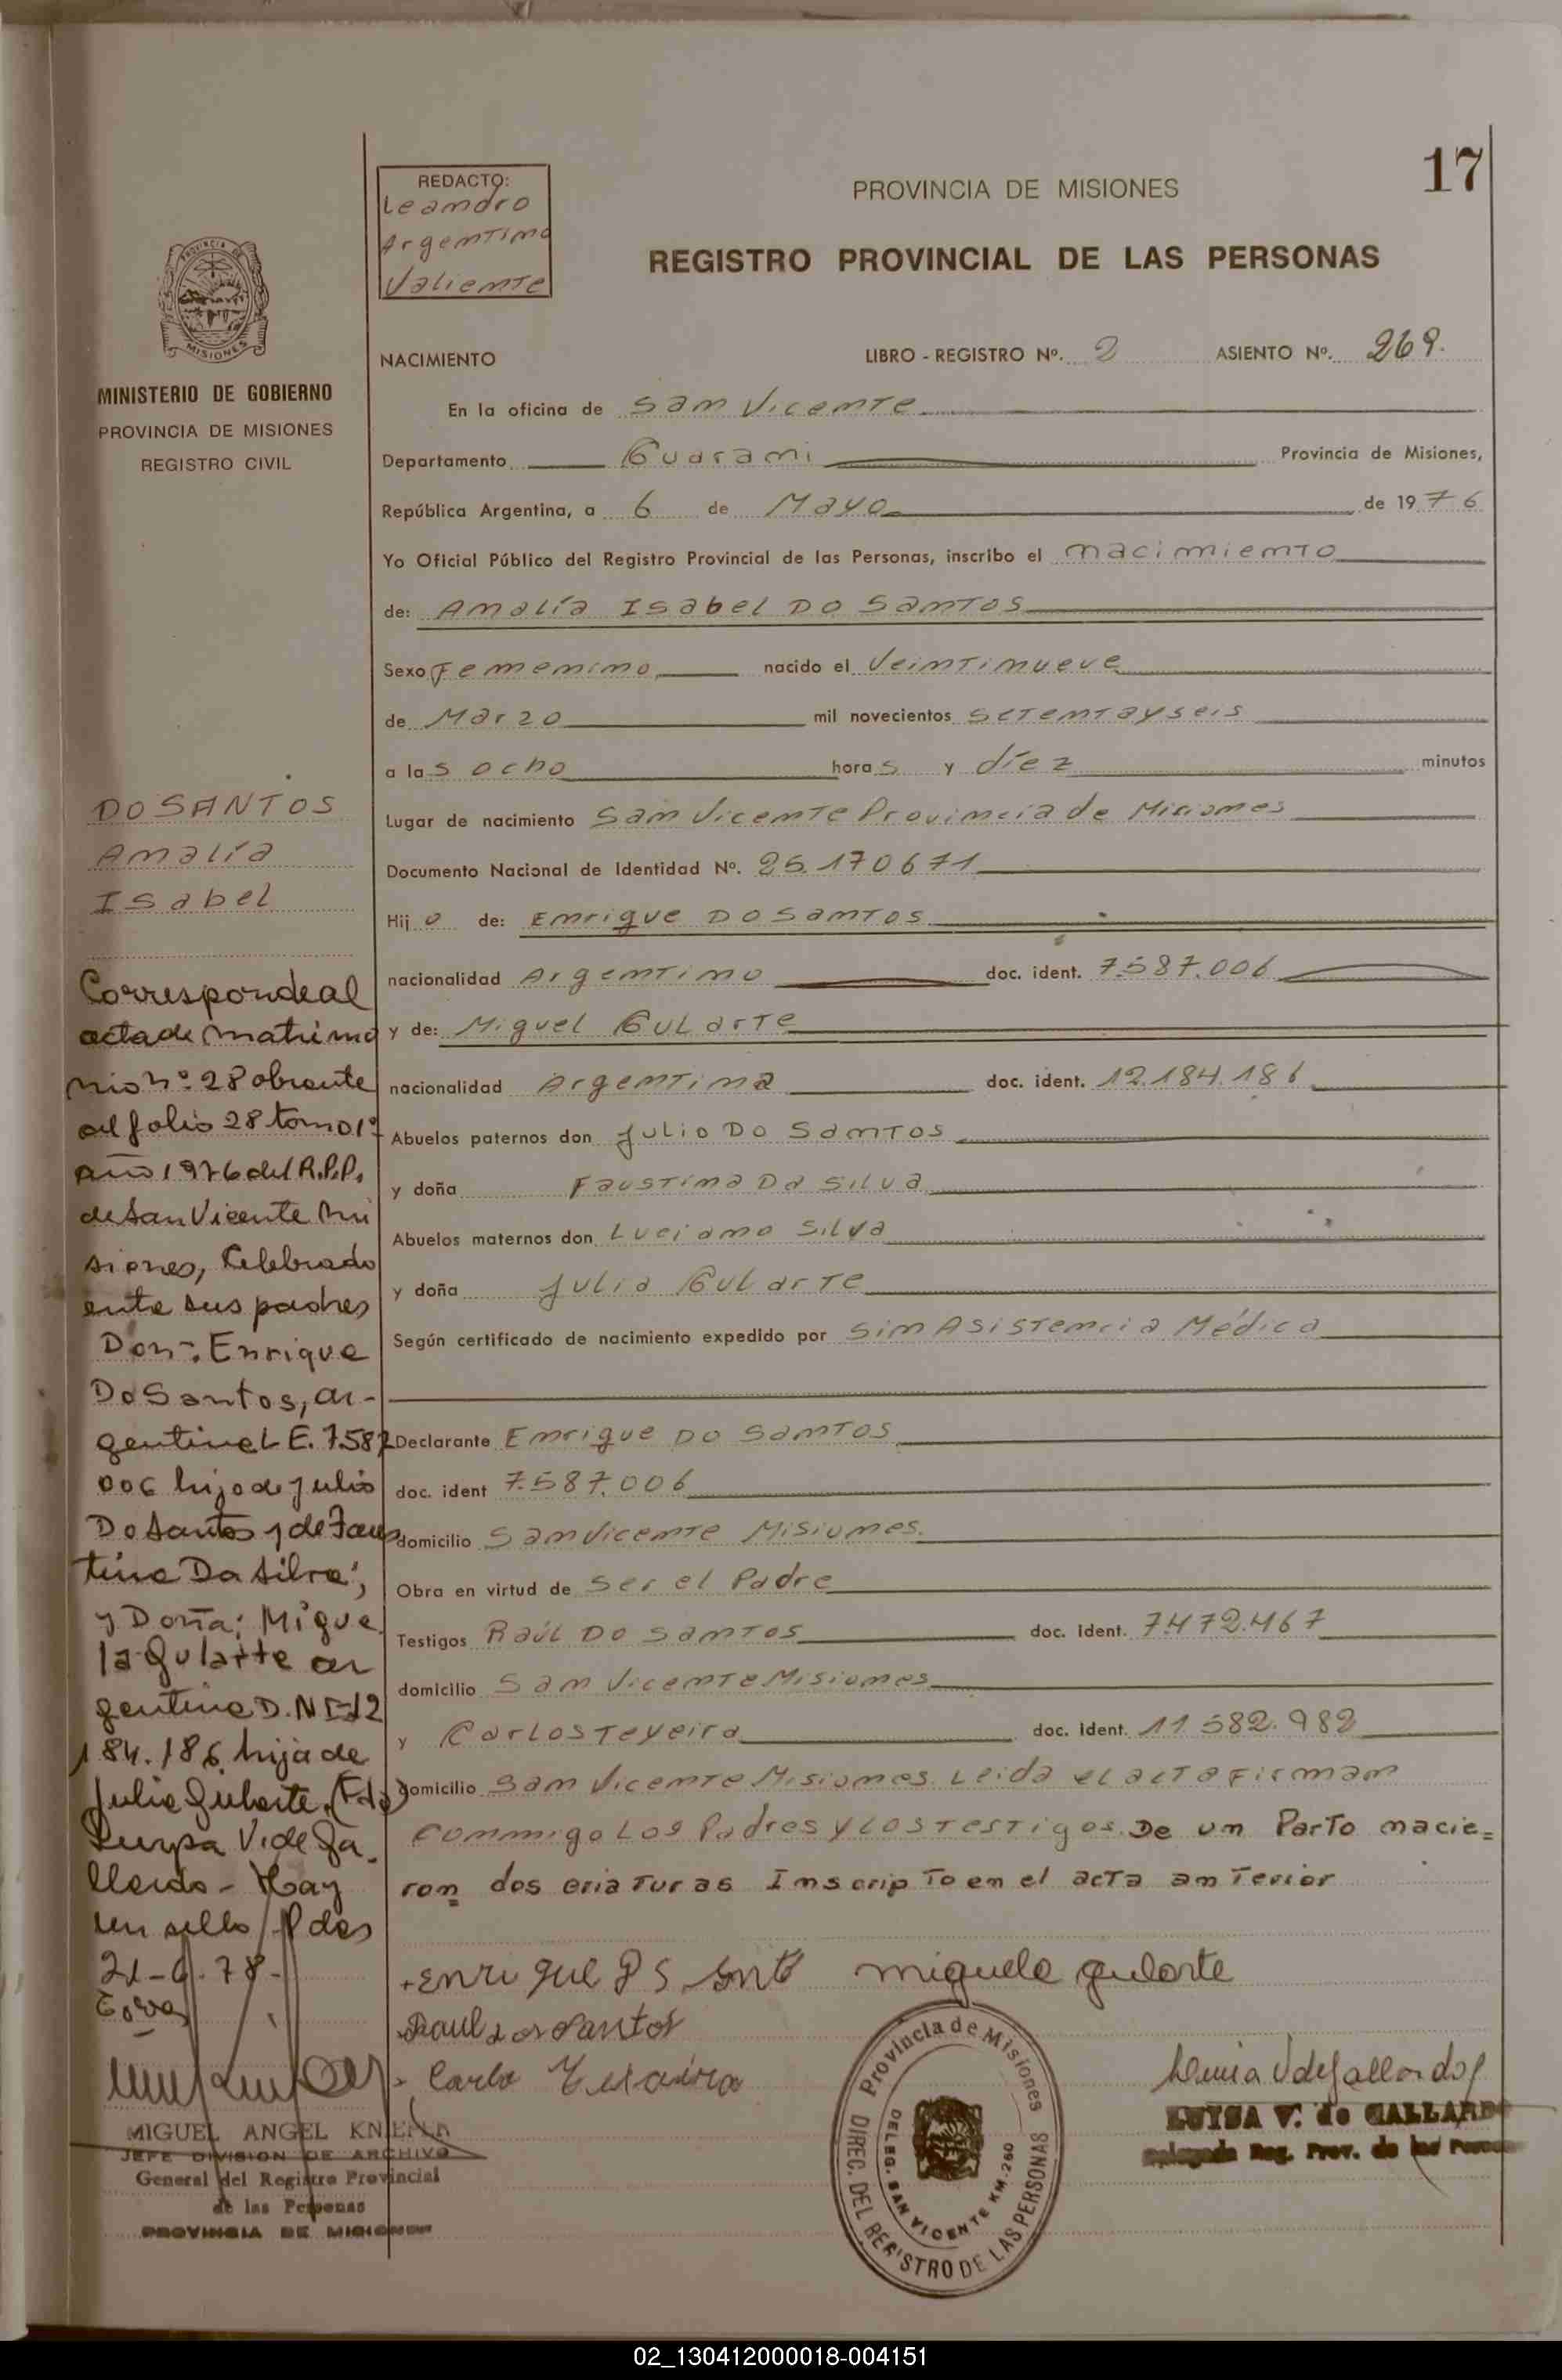 17
REDACTO:
Leandro
Argentino
Valiente
PROVINCIA DE MISIONES
REGISTRO PROVINCIAL DE LAS PERSONAS
PROVINCIA DE
MISIONES
MINISTERIO DE GOBIERNO
PROVINCIA DE MISIONES
REGISTRO CIVIL
NACIMIENTO LIBRO - REGISTRO Nº. 2 ASIENTO Nº. 269.
En la oficina de San Vicente
Departamento Guarani Provincia de Misiones,
República Argentina, a 6 de Mayo de 1976
Yo Oficial Público del Registro Provincial de las Personas, inscribo el nacimiento
de: Amalía Isabel DO Santos
Sexo Femenino nacido el Veintinueve
de Marzo mil novecientos setentayseis
a las ocho horas y díez minutos
Lugar de nacimiento San Vicente Provincia de Misiones
Documento Nacional de Identidad Nº. 25.170671
Hijo de: Enrique DO Santos
nacionalidad Argentino doc. ident. 7.587.006
y de: Miguel Gularte
nacionalidad Argentina doc. ident. 12.184.186
Abuelos paternos don Julio DO Santos
y doña Faustina Da Silva
Abuelos maternos don Luciano Silva
y doña Julia Gularte
Según certificado de nacimiento expedido por Sin Asistencia Médica
Declarante Enrique DO Santos
doc. ident 7.587.006
domicilio San Vicente Misiones.
Obra en virtud de Ser el Padre
Testigos Raúl DO Santos doc. ident. 7.472.467
domicilio San Vicente Misiones
y Carlos Teyeira doc. ident. 11.582.982
domicilio San Vicente Misiones. Leida el acta Firman
conmigo Los Padres y los Testigos. De un Parto nacie=
ron dos criaturas Inscripto en el acta anterior
DO SANTOS
Amalía
Isabel
Corresponde al
acta de matrimo
nio nº 28 obrante
al folio 28 tomo 1º
año 1976 del R.P.P.
de San Vicente Mi
siones, Celebrado
ente sus padres
Don: Enrique
Do Santos, ar-
gentino L E. 7.587
006 hijo de Julio
Do Santos y de Faus
tina Da Silva;
y Doña: Migue
la Gularte ar
gentina D.N I-12
184.186 hija de
Julia Gularte. (Fdo)
Luisa V. de Ga.
llardo - Hay
un sello / P das
21-6-78-
Enrique D S snto miguela gularte
Raul dos Santos
Carlo Texeira
Luisa V de Gallardo
LUISA V. de GALLARDO
Delegada Reg. Prov. de las Personas
Provincia de Misiones
DIREC. DEL REGISTRO DE LAS PERSONAS
DELEG. SAN VICENTE KM. 260
MIGUEL ANGEL
JEFE DIVISION DE ARCHIVO
General del Registro Provincial
de las Personas
PROVINCIA DE MISIONES
02_130412000018-004151